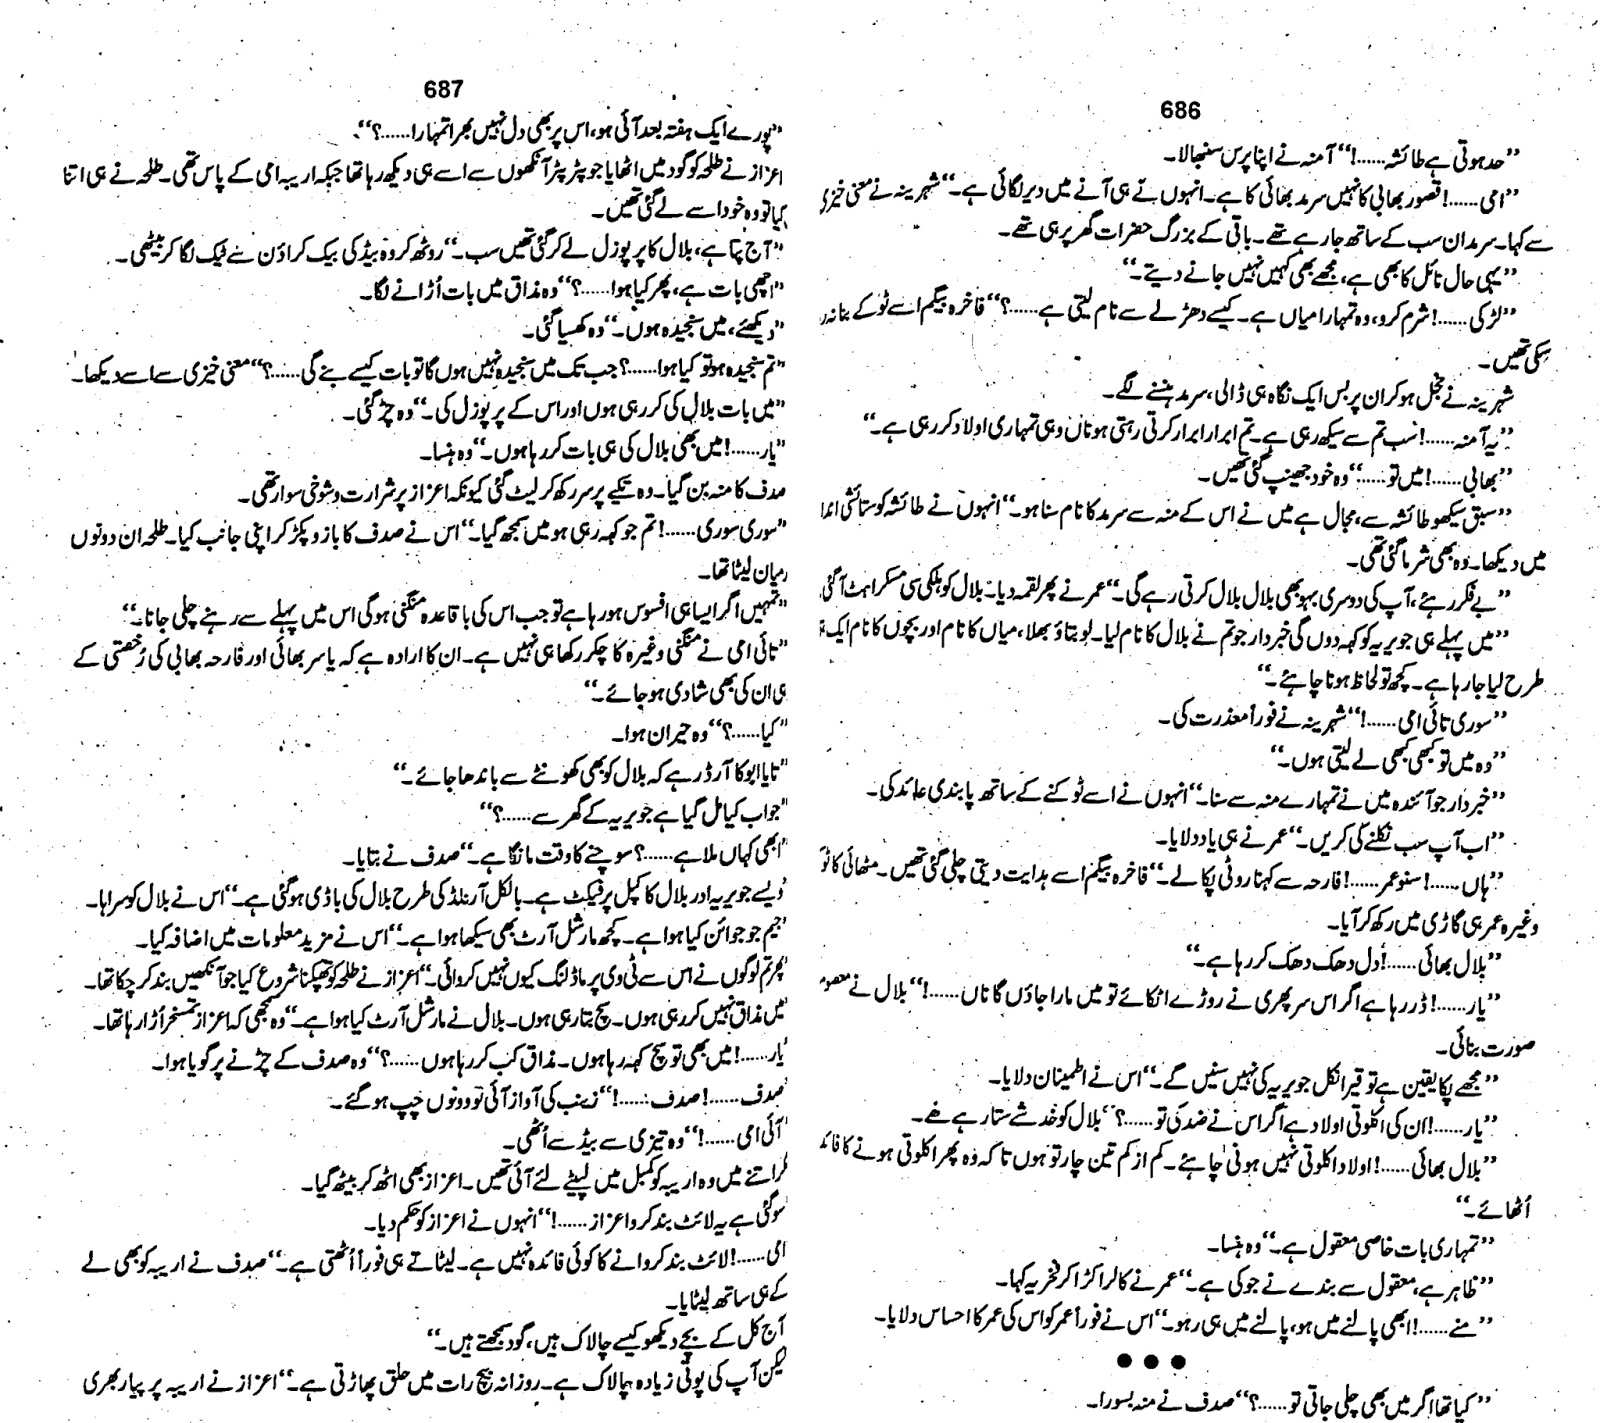 686
”حد ہوتی ہے طائشہ......!“ آمنہ نے اپنا پرس سنبھالا۔
”امی......! قصور بھابی کا نہیں سرمد بھائی کا ہے۔ انہوں نے ہی آنے میں دیر لگائی ہے۔“ شہرینہ نے معنی خیزی
سے کہا۔ سرمد ان سب کے ساتھ جا رہے تھے۔ باقی کے بزرگ حضرات گھر پر ہی تھے۔
”یہی حال نائل کا بھی ہے، مجھے بھی کہیں نہیں جانے دیتے۔“
”لڑکی......! شرم کرو، وہ تمہارا میاں ہے۔ کیسے دھڑلے سے نام لیتی ہے......؟“ فاخرہ بیگم اسے ٹوکے بنا نہ رہ
سکی تھیں۔
شہرینہ نے خجل ہو کر ان پر بس ایک نگاہ ہی ڈالی، سرمد ہنسنے لگے۔
”یہ آمنہ......! سب تم سے سیکھ رہی ہے۔ تم ابرار ابرار کرتی رہتی ہو ناں وہی تمہاری اولاد کر رہی ہے۔“
”بھابی......! میں تو......“ وہ خود جھینپ گئی تھیں۔
”سبق سیکھو طائشہ سے، مجال ہے میں نے اس کے منہ سے سرمد کا نام سنا ہو۔“ انہوں نے طائشہ کو ستائشی اندا
میں دیکھا۔ وہ بھی شرما گئی تھی۔
”بے فکر رہئے، آپ کی دوسری بہو بھی بلال بلال کرتی رہے گی۔“ عمر نے پھر لقمہ دیا۔ بلال کو ہلکی سی مسکراہٹ آ گئی
”میں پہلے ہی جویریہ کو کہہ دوں گی خبردار جو تم نے بلال کا نام لیا۔ لو بتاؤ بھلا، میاں کا نام اور بچوں کا نام ایک
طرح لیا جا رہا ہے۔ کچھ تو لحاظ ہونا چاہئے۔“
”سوری تائی امی......!“ شہرینہ نے فوراً معذرت کی۔
”وہ میں تو کبھی کبھی لے لیتی ہوں۔“
”خبردار جو آئندہ میں نے تمہارے منہ سے سنا۔“ انہوں نے اسے ٹوکنے کے ساتھ پابندی عائد کی۔
”اب آپ سب نکلنے کی کریں۔“ عمر نے ہی یاد دلایا۔
”ہاں......! سنو عمر......! فارحہ سے کہنا روٹی پکا لے۔“ فاخرہ بیگم اسے ہدایت دیتی چلی گئی تھیں۔ مٹھائی کا ٹو
وغیرہ عمر ہی گاڑی میں رکھ کر آیا۔
”بلال بھائی......! دل دھک دھک کر رہا ہے۔“
”یار......! ڈر رہا ہے اگر اس سر پھری نے روڑے اٹکائے تو میں مارا جاؤں گا ناں......!“ بلال نے معصوم
صورت بنائی۔
”مجھے پکا یقین ہے توقیر انکل جویریہ کی نہیں سنیں گے۔“ اس نے اطمینان دلایا۔
”یار......! ان کی اکلوتی اولاد ہے اگر اس نے ضد کی تو......؟“ بلال کو خدشے ستا رہے تھے۔
”بلال بھائی......! اولاد اکلوتی نہیں ہونی چاہئے۔ کم از کم تین چار تو ہوں تاکہ وہ پھر اکلوتی ہونے کا فائد
اُٹھائے۔“
”تمہاری بات خاصی معقول ہے۔“ وہ ہنسا۔
”ظاہر ہے، معقول سے بندے نے جو کی ہے۔“ عمر نے کالر اکڑا کر فخریہ کہا۔
”منے......! ابھی پالنے میں ہو، پالنے میں ہی رہو۔“ اس نے فوراً عمر کو اس کی عمر کا احساس دلایا۔
● ● ●
”کیا تھا اگر میں بھی چلی جاتی تو......؟“ صدف نے منہ بسورا۔
687
”پورے ایک ہفتہ بعد آئی ہو، اس پر بھی دل نہیں بھرا تمہارا......؟“
اعزاز نے طلحہ کو گود میں اٹھایا جو پٹر پٹر آنکھوں سے اسے ہی دیکھ رہا تھا جبکہ اریبہ امی کے پاس تھی۔ طلحہ نے ہی اتنا
کیا تو وہ خود اسے لے گئی تھیں۔
”آج پتا ہے، بلال کا پرپوزل لے کر گئی تھیں سب۔“ روٹھ کر وہ بیڈ کی بیک کراؤن سے ٹیک لگا کر بیٹھی۔
”اچھی بات ہے، پھر کیا ہوا......؟“ وہ مذاق میں بات اُڑانے لگا۔
”دیکھئے، میں سنجیدہ ہوں۔“ وہ کھسیا گئی۔
”تم سنجیدہ ہو تو کیا ہوا......؟ جب تک میں سنجیدہ نہیں ہوں گا تو بات کیسے بنے گی......؟“ معنی خیزی سے اسے دیکھا۔
”میں بات بلال کی کر رہی ہوں اور اس کے پرپوزل کی۔“ وہ چڑ گئی۔
”یار......! میں بھی بلال کی ہی بات کر رہا ہوں۔“ وہ ہنسا۔
صدف کا منہ بن گیا۔ وہ تکیے پر سر رکھ کر لیٹ گئی کیونکہ اعزاز پر شرارت و شوخی سوار تھی۔
”سوری سوری......! تم جو کہہ رہی ہو میں سمجھ گیا۔“ اس نے صدف کا بازو پکڑ کر اپنی جانب کیا۔ طلحہ ان دونوں
رمیان لیٹا تھا۔
”تمہیں اگر ایسا ہی افسوس ہو رہا ہے تو جب اس کی باقاعدہ منگنی ہوگی اس میں پہلے سے رہنے چلی جانا۔“
”تائی امی نے منگنی وغیرہ کا چکر رکھا ہی نہیں ہے۔ ان کا ارادہ ہے کہ یاسر بھائی اور فارحہ بھابی کی رُخصتی کے
ہی ان کی بھی شادی ہو جائے۔“
”کیا......؟“ وہ حیران ہوا۔
”تایا ابو کا آرڈر ہے کہ بلال کو بھی کھونٹے سے باندھا جائے۔“
”جواب کیا مل گیا ہے جویریہ کے گھر سے......؟“
”ابھی کہاں ملا ہے......؟ سوچنے کا وقت مانگا ہے۔“ صدف نے بتایا۔
”ویسے جویریہ اور بلال کا کپل پرفیکٹ ہے۔ بالکل آرنلڈ کی طرح بلال کی باڈی ہو گئی ہے۔“ اس نے بلال کو سراہا۔
”جیم جو جوائن کیا ہوا ہے۔ کچھ مارشل آرٹ بھی سیکھا ہوا ہے۔“ اس نے مزید معلومات میں اضافہ کیا۔
”پھر تم لوگوں نے اس سے ٹی وی پر ماڈلنگ کیوں نہیں کروائی۔“ اعزاز نے طلحہ کو تھپکنا شروع کیا جو آنکھیں بند کر چکا تھا۔
”میں مذاق نہیں کر رہی ہوں۔ سچ بتا رہی ہوں۔ بلال نے مارشل آرٹ کیا ہوا ہے۔“ وہ سمجھی کہ اعزاز تمسخر اُڑا رہا تھا۔
”یار......! میں بھی تو سچ کہہ رہا ہوں۔ مذاق کب کر رہا ہوں......؟“ وہ صدف کے چڑنے پر گویا ہوا۔
”صدف......! صدف......!“ زینب کی آواز آئی تو دونوں چپ ہو گئے۔
”آئی امی......!“ وہ تیزی سے بیڈ سے اُٹھی۔
گر اتنے میں وہ اریبہ کو کمبل میں لپیٹے لئے آئی تھیں۔ اعزاز بھی اٹھ کر بیٹھ گیا۔
”سو گئی ہے یہ لائٹ بند کرو اعزاز......!“ انہوں نے اعزاز کو حکم دیا۔
”امی......! لائٹ بند کروانے کا کوئی فائدہ نہیں ہے۔ لیٹاتے ہی فوراً اُٹھتی ہے۔“ صدف نے اریبہ کو بھی لے
کے ہی ساتھ لیٹایا۔
آج کل کے بچے دیکھو کیسے چالاک ہیں، گود سمجھتے ہیں۔“
لیکن آپ کی پوتی زیادہ چالاک ہے۔ روزانہ بیچ رات میں حلق پھاڑتی ہے۔“ اعزاز نے اریبہ پر پیار بھری